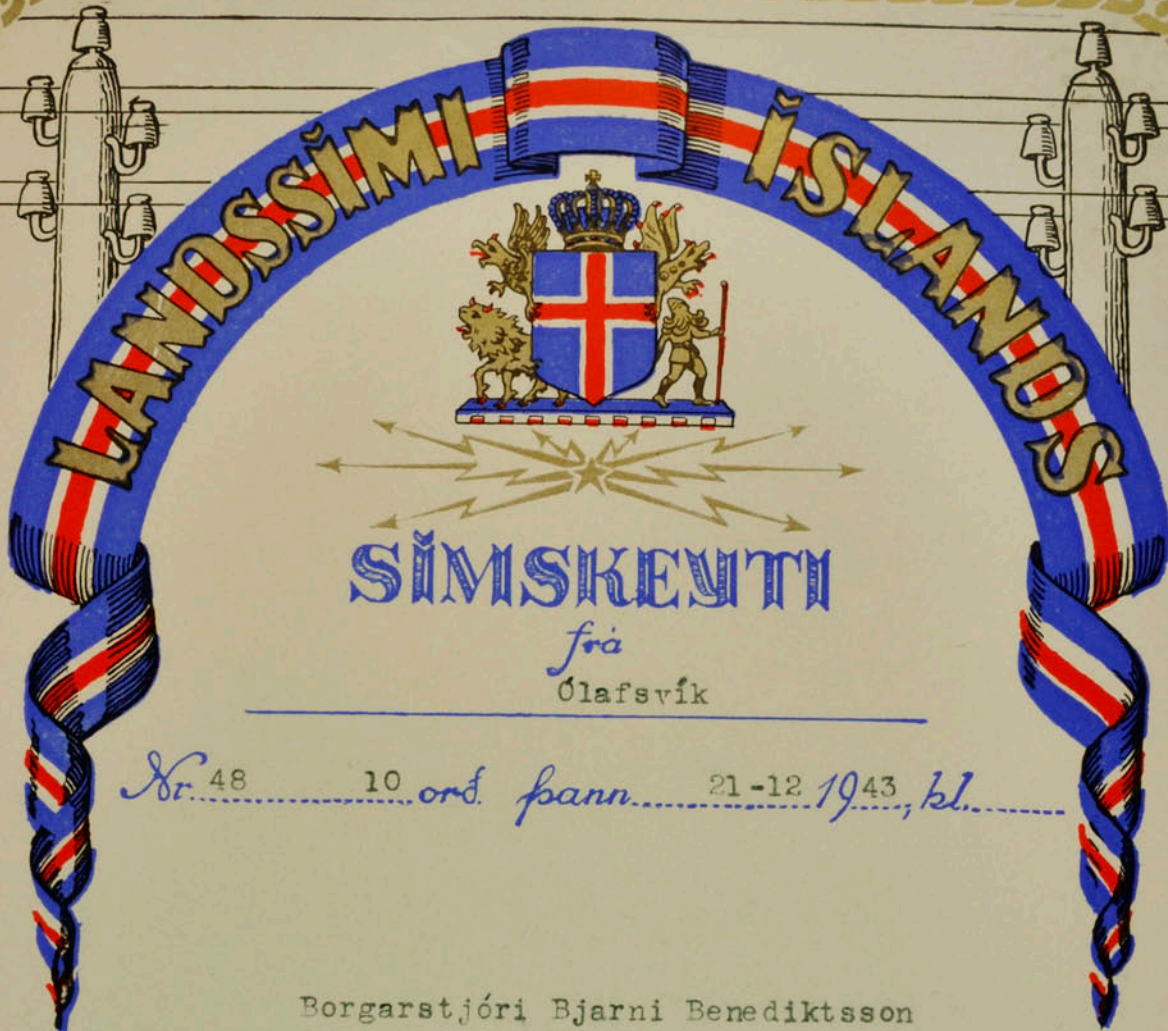 LANDSSÍMI ÍSLANDS
SÍMSKEYTI
frá
Ólafsvík
Nr. 48 10 orð. þann 21-12 1943, kl.
Borgarstjóri Bjarni Benediktsson